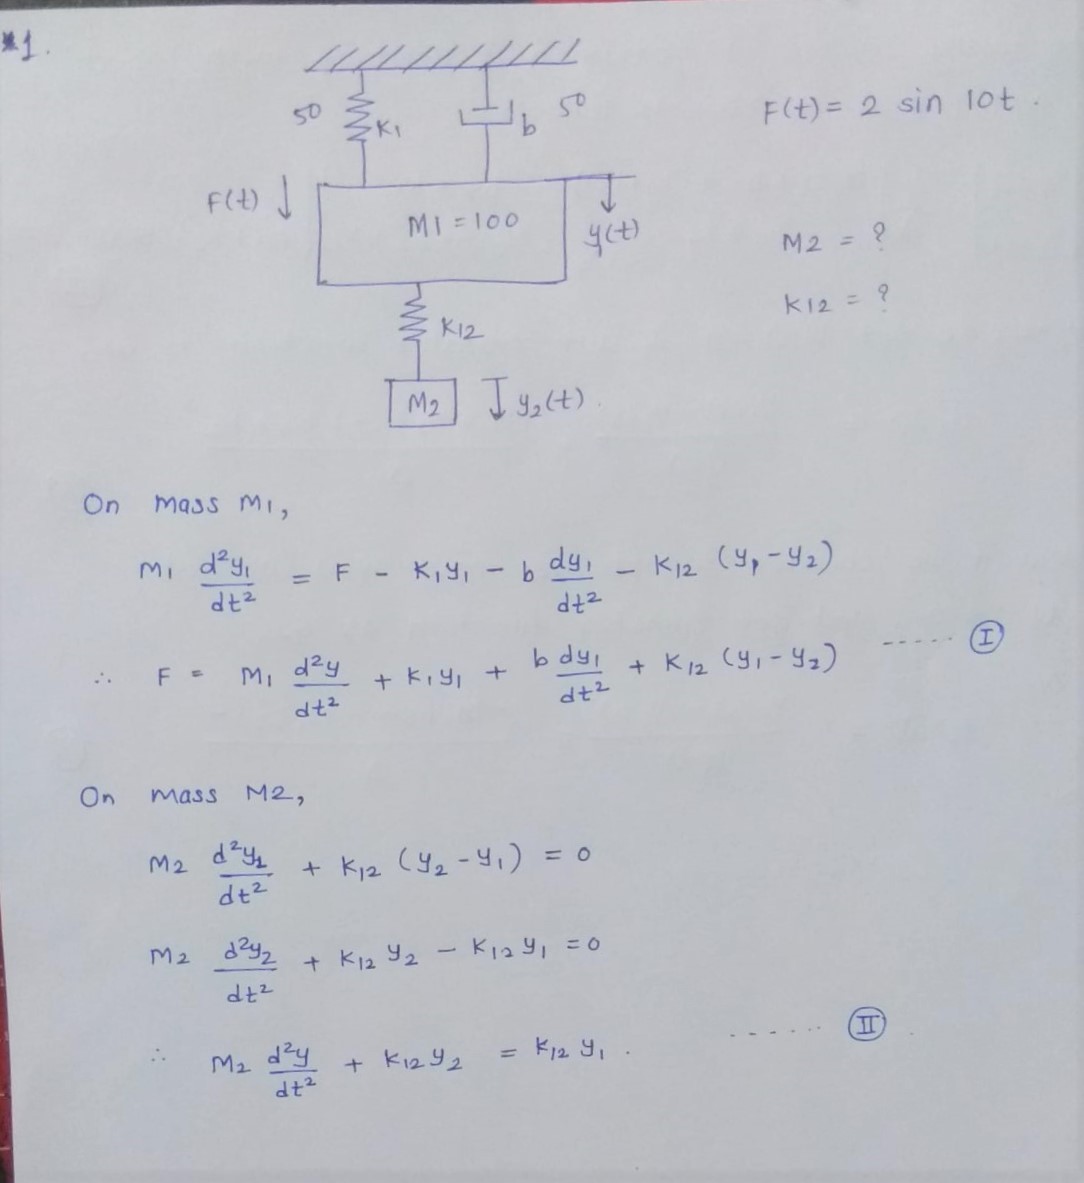 *1.
50 K1 b 50
F(t) = 2 sin 10t .
F(t) ↓ M1 = 100 y(t)
M2 = ?
K12 = ?
K12
M2 y₂(t) .
On mass M1,
M₁ d²y₁/dt² = F - K₁y₁ - b dy₁/dt² - K₁₂ (y₁ - y₂)
∴ F = M₁ d²y/dt² + K₁y₁ + b dy₁/dt² + K₁₂ (y₁ - y₂) ------ Ⓘ
On mass M2,
M2 d²y₂/dt² + K₁₂ (y₂ - y₁) = 0
M2 d²y₂/dt² + K₁₂ y₂ - K₁₂ y₁ = 0
∴ M₂ d²y/dt² + K₁₂ y₂ = K₁₂ y₁ . ------ II